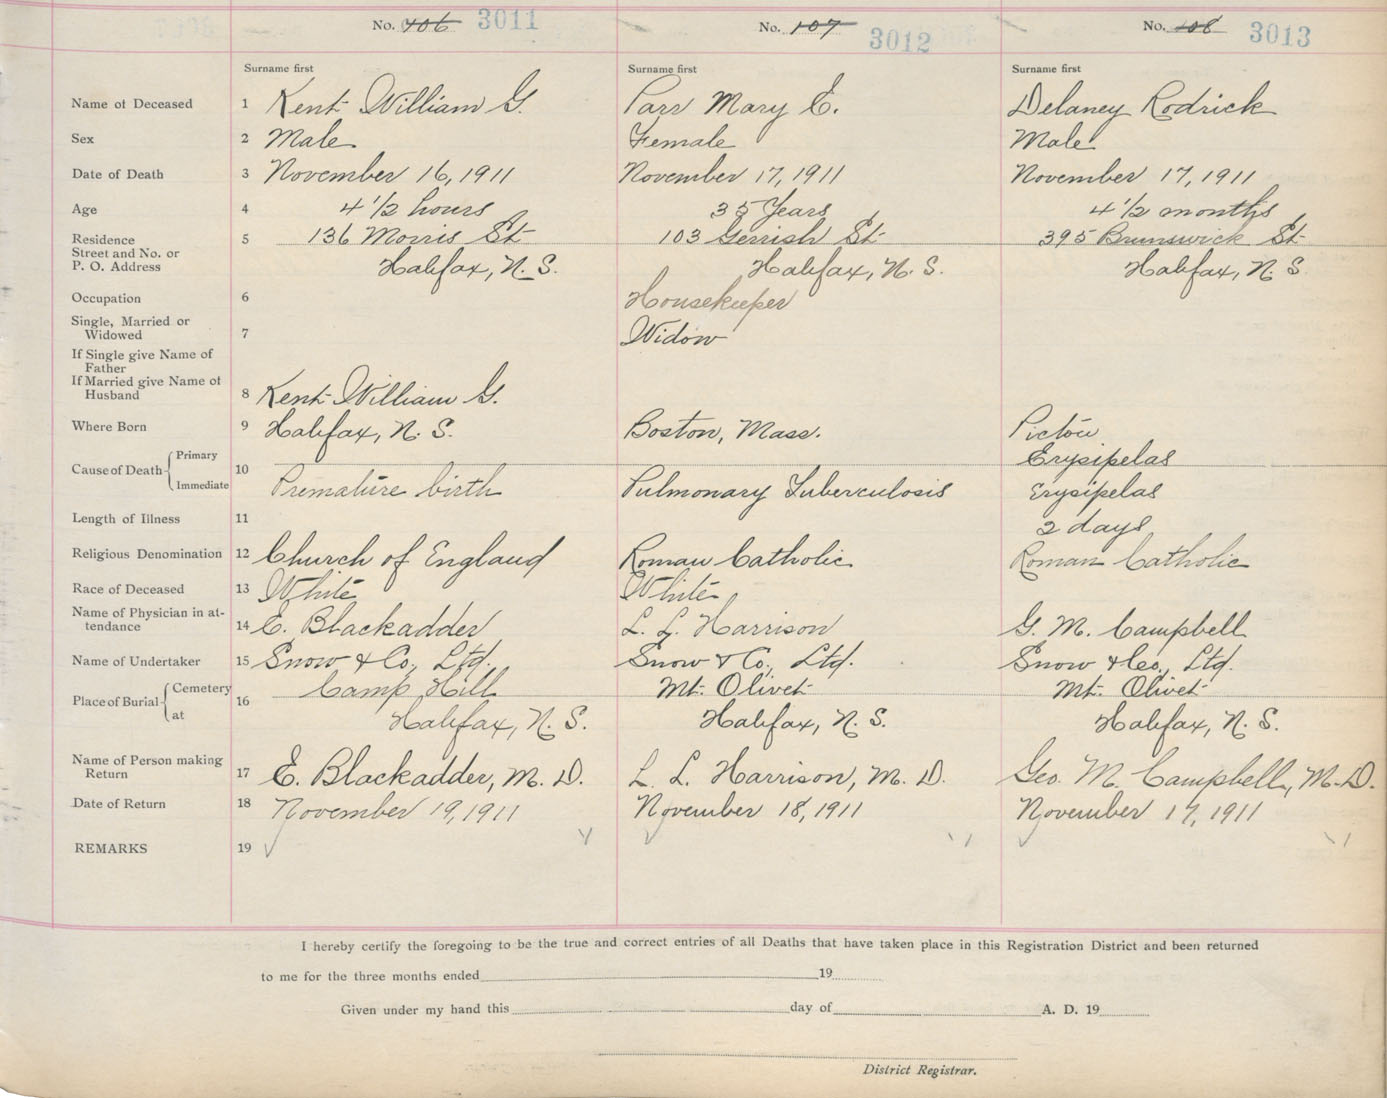 No. 106 3011 No. 107 3012 No. 108 3013
Surname first Surname first Surname first
Name of Deceased 1 Kent William G. Parr Mary E. Delaney Rodrick
Sex 2 Male Female Male
Date of Death 3 November 16, 1911 November 17, 1911 November 17, 1911
Age 4 4 1/2 hours 35 Years 4 1/2 months
Residence 5 136 Morris St 103 Gerrish St 395 Brunswick St
Street and No. or
P. O. Address Halifax, N. S. Halifax, N. S. Halifax, N. S
Occupation 6 Housekeeper
Single, Married or
Widowed 7 Widow
If Single give Name of
Father
If Married give Name of
Husband 8 Kent William G.
Where Born 9 Halifax, N. S. Boston, Mass. Pictou
Primary Erysipelas
Cause of Death 10
Immediate Premature birth Pulmonary Tuberculosis Erysipelas
Length of Illness 11 2 days
Religious Denomination 12 Church of England Roman Catholic Roman Catholic
Race of Deceased 13 White White
Name of Physician in at-
tendance 14 E. Blackadder L. L. Harrison G. M. Campbell
Name of Undertaker 15 Snow & Co., Ltd. Snow & Co., Ltd. Snow & Co., Ltd.
Cemetery Camp Hill Mt. Olivet Mt. Olivet
Place of Burial 16
at Halifax, N. S. Halifax, N. S. Halifax, N. S.
Name of Person making
Return 17 E. Blackadder, M. D. L. L. Harrison, M. D. Geo. M. Campbell, M. D.
Date of Return 18 November 19, 1911 November 18, 1911 November 17, 1911
REMARKS 19
I hereby certify the foregoing to be the true and correct entries of all Deaths that have taken place in this Registration District and been returned
to me for the three months ended 19
Given under my hand this day of A. D. 19
District Registrar.